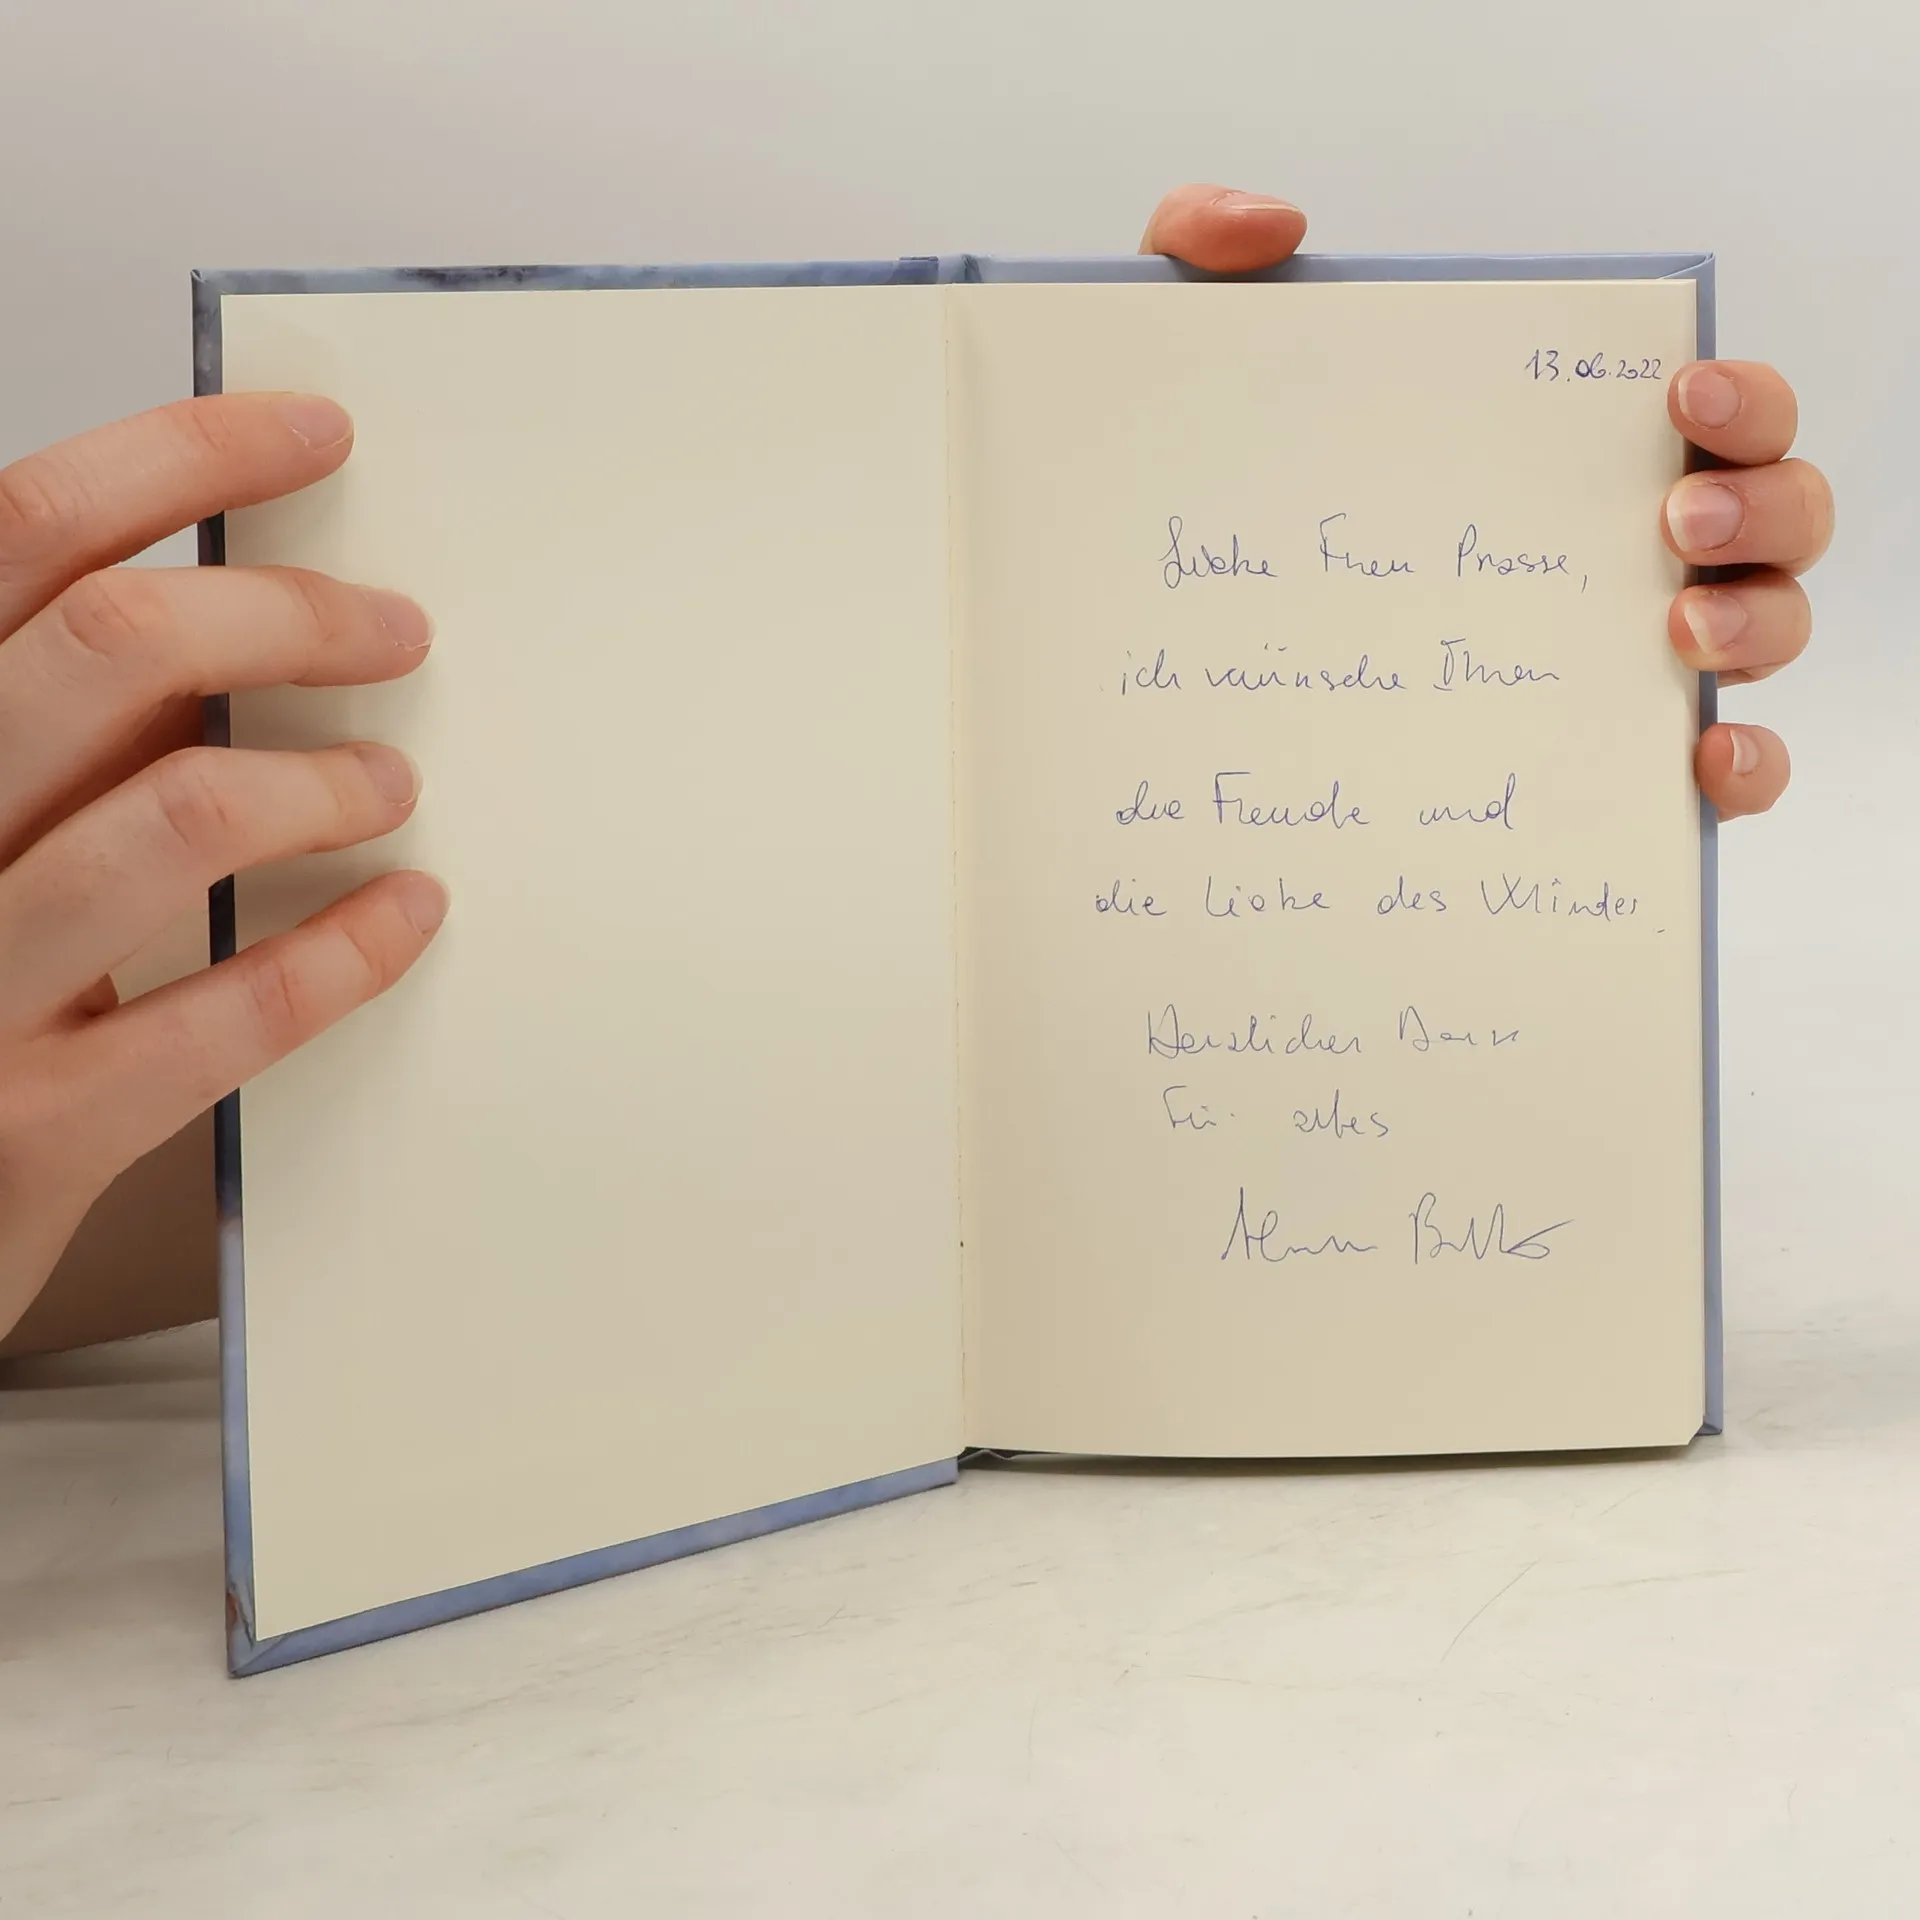 13.06.2022
Liebe Frau Prasse,
ich wünsche Ihnen
die Freude und
die Liebe des Windes.
Herzlichen Dank
Für alles